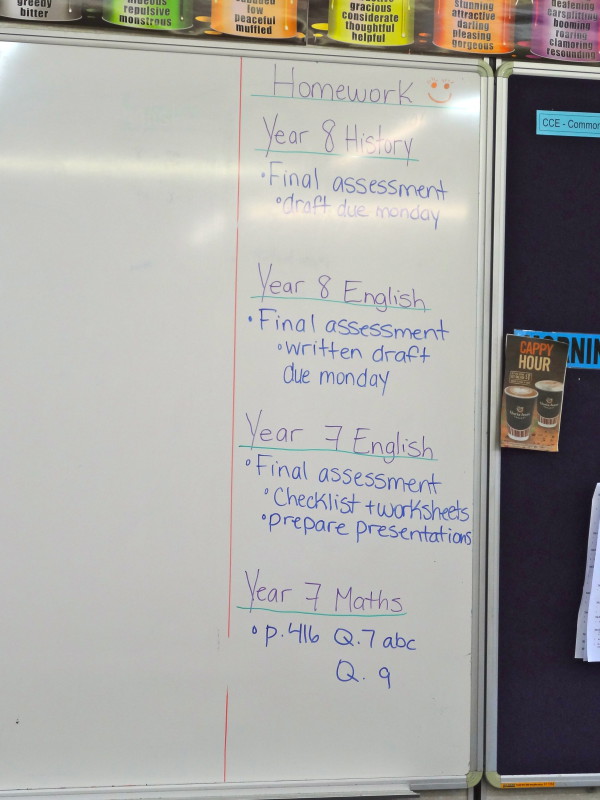 greedy
bitter
repulsive
monstrous
low
peaceful
muffled
gracious
considerate
thoughtful
helpful
stunning
attractive
daring
pleasing
gorgeous
deafening
earsplitting
booming
roaring
clamoring
resounding
Homework
Year 8 History
•Final assessment
•draft due monday
Year 8 English
•Final assessment
•written draft
due monday
Year 7 English
•Final assessment
•Checklist + worksheets
•prepare presentations
Year 7 Maths
•p.416 Q.7 abc
Q. 9
CCE - Common
CAPPY
HOUR